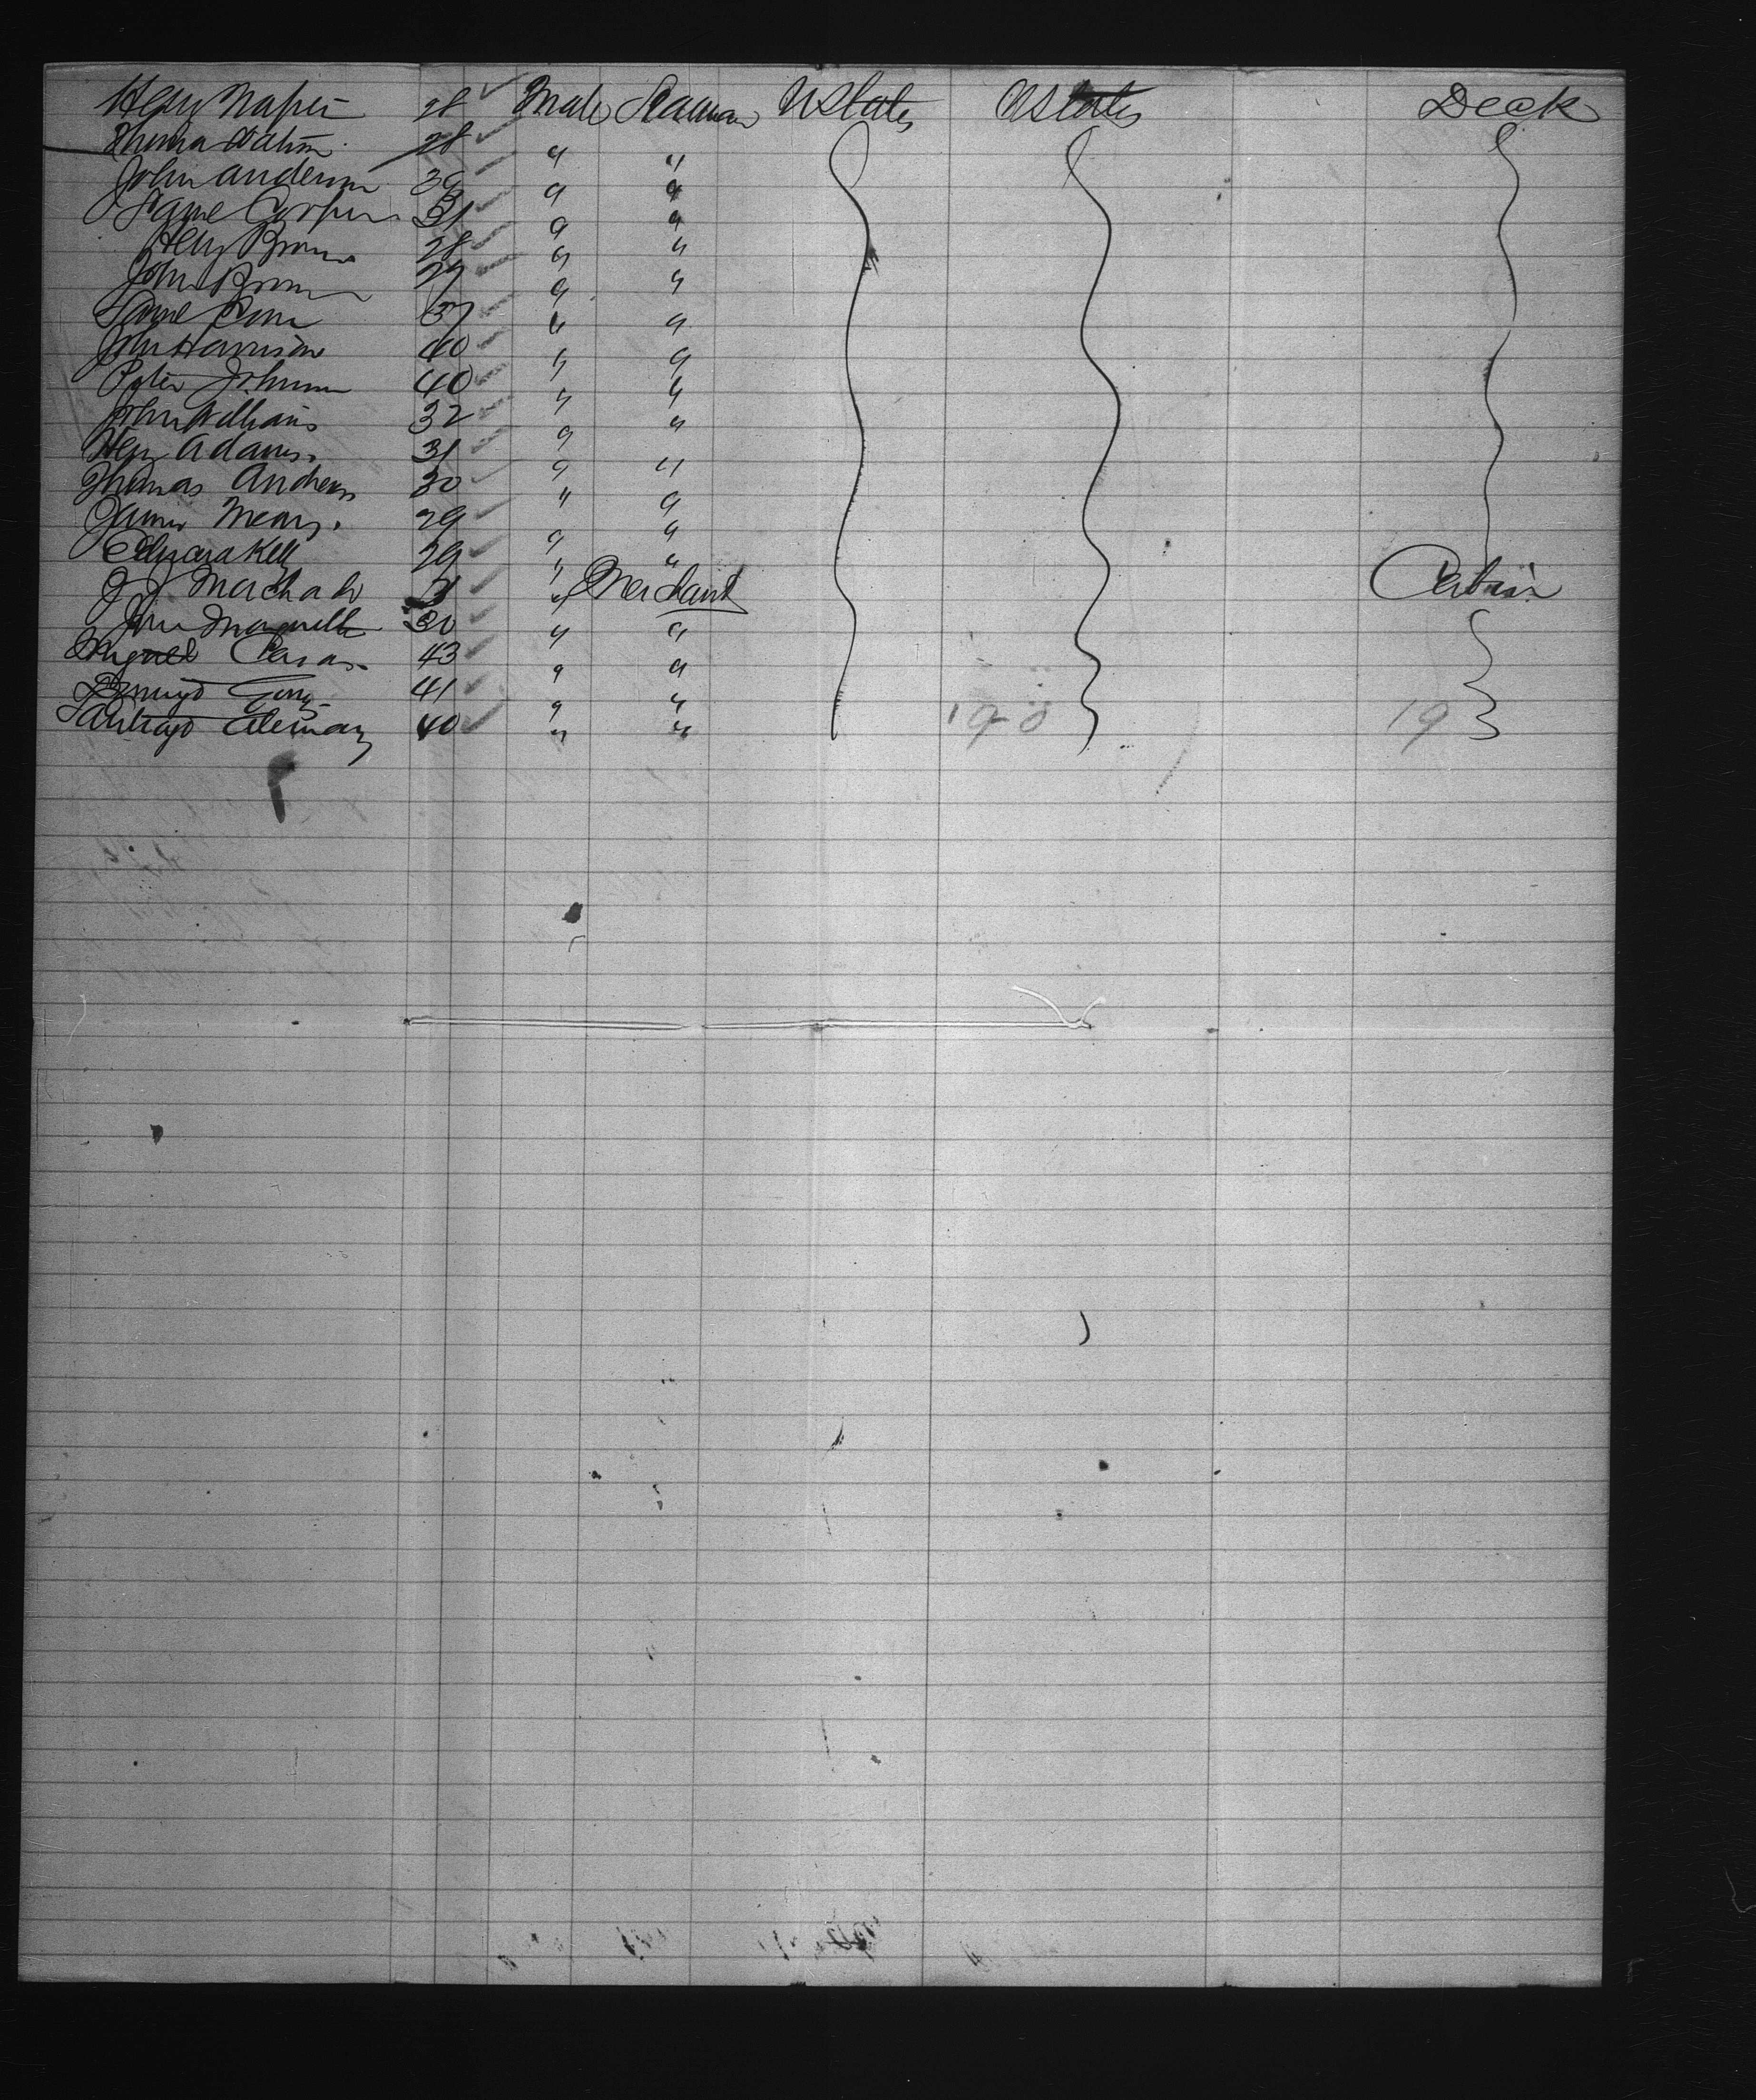 Henry Napier 28 Male Seaman U States U States Deck
Thomas Watson 28 " "
John Anderson 39 " "
James Cooper 31 " "
Henry Brown 28 " "
John Brown 27 " "
37 " "
John Harrison 40 " "
Peter Johnson 40 " "
John Williams 32 " "
Henry Adams. 31 " "
Thomas Andrews 30 " "
James Mears. 29 " "
Edward Kelly 29 " "
J. J. Machado " Merchant Cabin
30 " "
Miguel 43 " "
41 " "
Santiago Aleman 40 " " 19